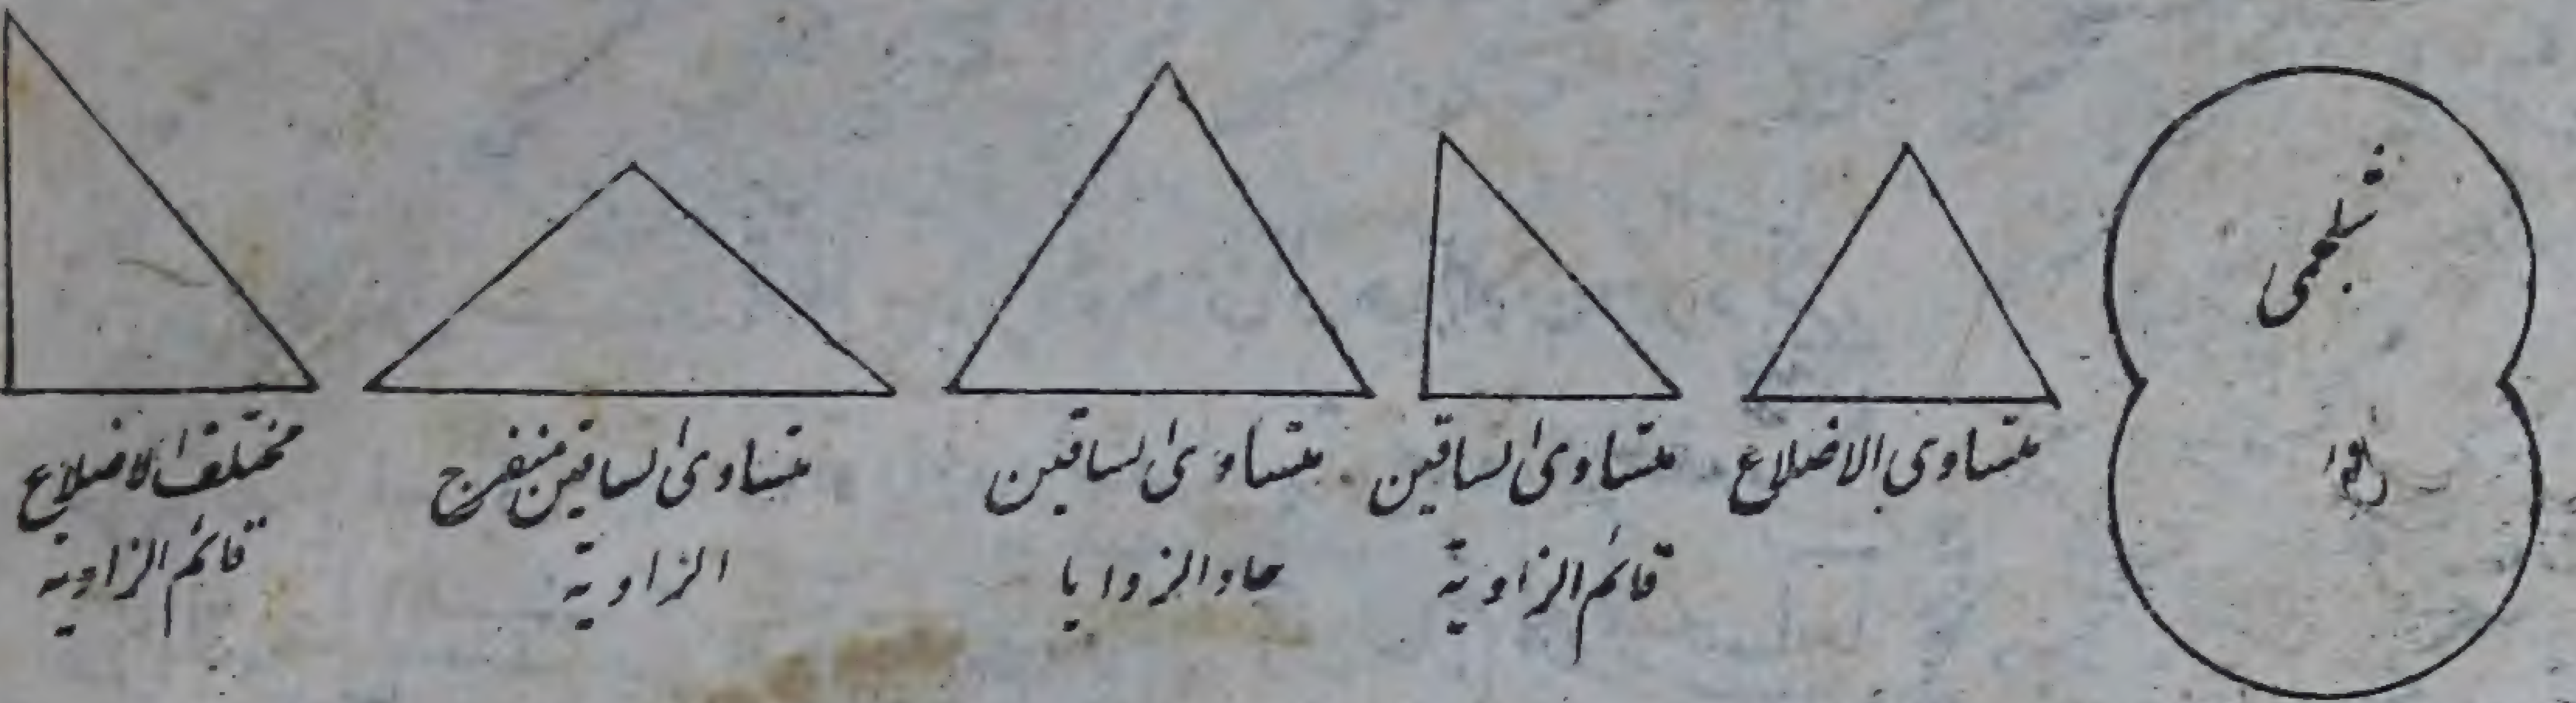 شلجمی
متساوی الاضلاع
متساوی الساقین
قائم الزاویة
متساوی الساقین
حاد الزوایا
متساوی الساقین منفرج
الزاویة
مختلف الاضلاع
قائم الزاویة